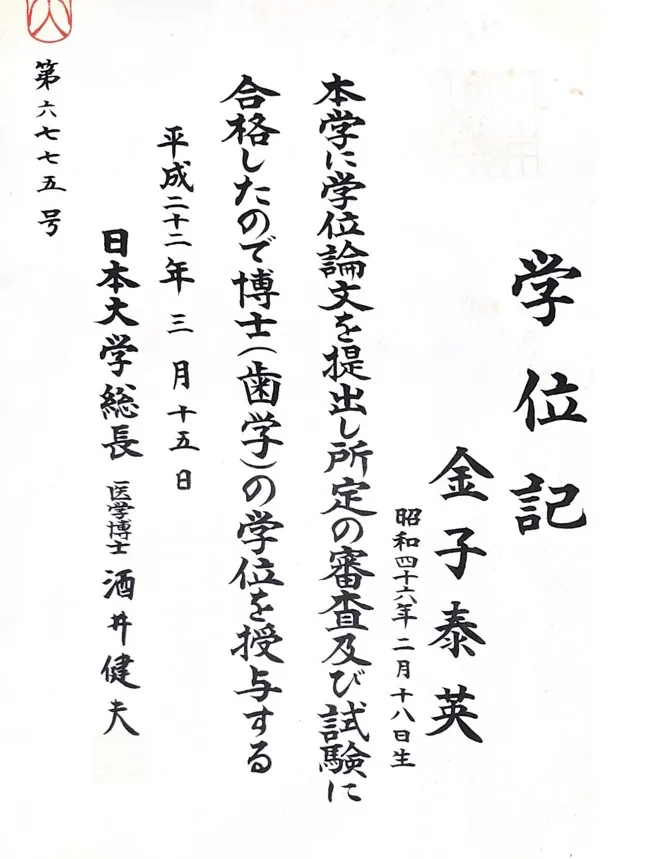 学位記
金子泰英
昭和四十六年二月十八日生
本学に学位論文を提出し所定の審査及び試験に
合格したので博士(歯学)の学位を授与する
平成二十二年三月十五日
日本大学総長 医学博士 酒井健夫
第六七七五号